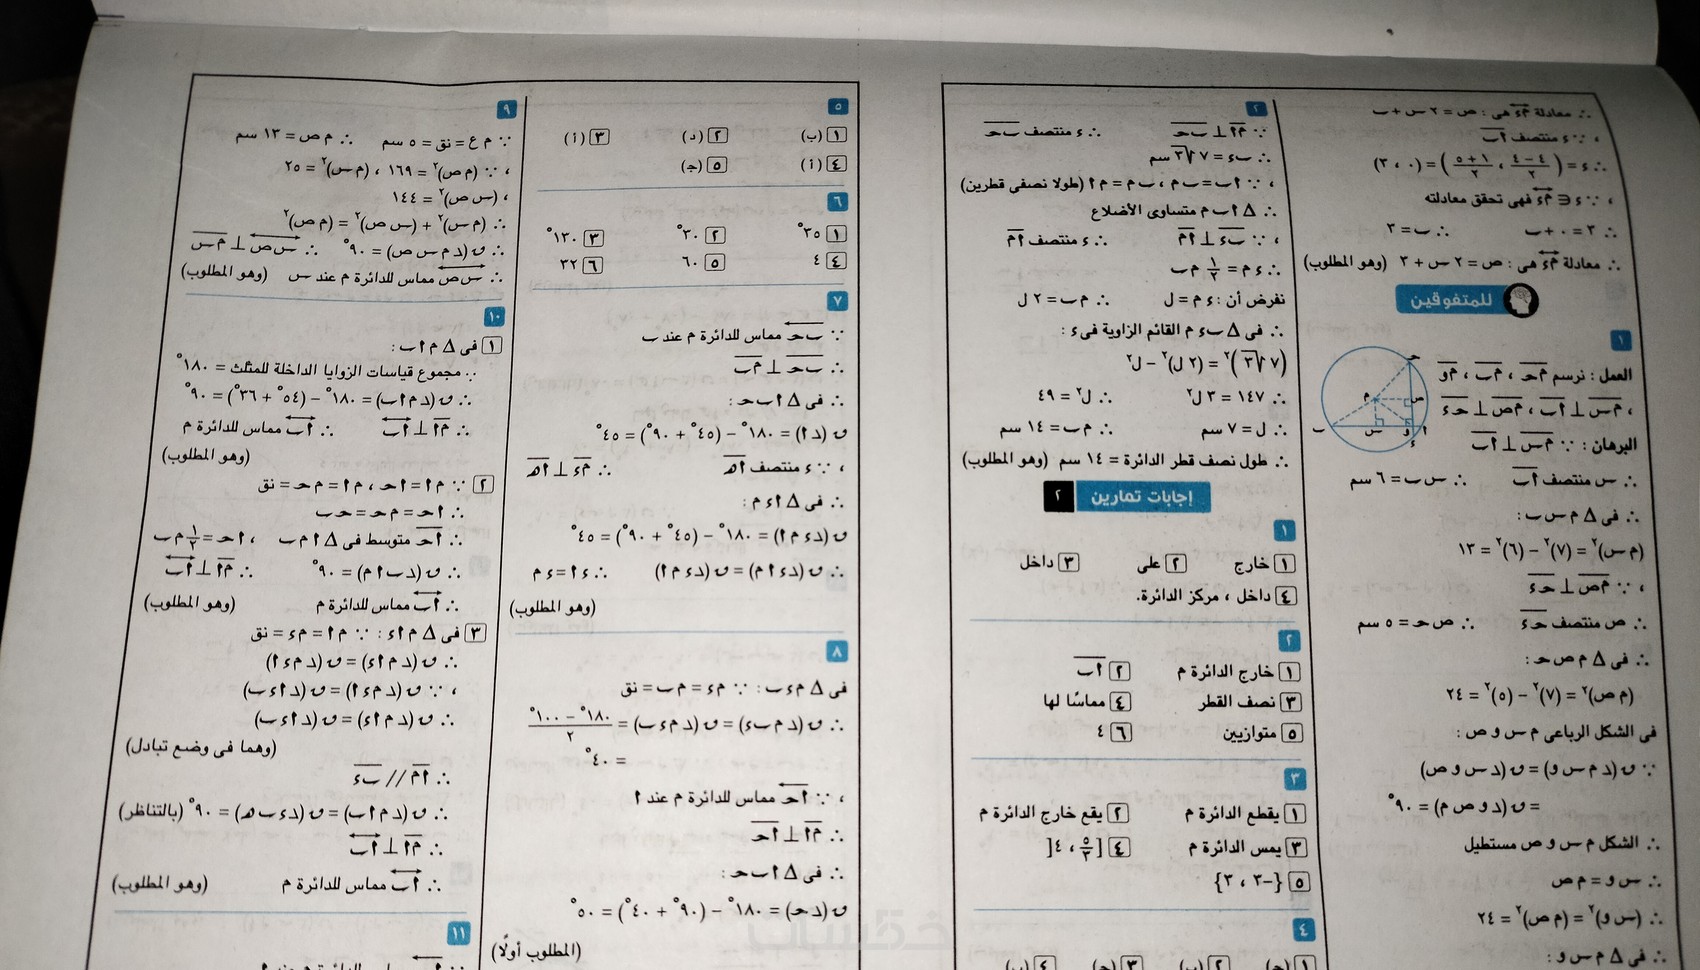 ∴ معادلة م‌ء هى : ص = ٢ س + ب
، ∵ ء منتصف أب
∴ ء = (٤ – ٤ / ٢ ، ١ + ٥ / ٢) = (٠ ، ٣)
، ∵ ء ∈ م‌ء فهى تحقق معادلته
∴ ٣ = ٠ + ب ∴ ب = ٣
∴ معادلة م‌ء هى : ص = ٢ س + ٣ (وهو المطلوب)
للمتفوقين
١
العمل : نرسم م‌ح ، م‌ب ، م‌و
، م‌س ⊥ أب ، م‌ص ⊥ ح‌ء
البرهان : ∵ م‌س ⊥ أب
ح
م
ص
ب
س
و
أ
ء
∴ س منتصف أب ∴ س ب = ٦ سم
∴ فى Δ م س ب :
(م س)٢ = (٧)٢ – (٦)٢ = ١٣
، ∵ م‌ص ⊥ ح‌ء
∴ ص منتصف ح‌ء ∴ ص ح = ٥ سم
∴ فى Δ م ص ح :
(م ص)٢ = (٧)٢ – (٥)٢ = ٢٤
فى الشكل الرباعى م س و ص :
∵ ق (د م س و) = ق (د س و ص)
= ق (د و ص م) = ٩٠°
∴ الشكل م س و ص مستطيل
∴ س و = م ص
∴ (س و)٢ = (م ص)٢ = ٢٤
∴ فى Δ م س و :
٢
∵ م‌أ ⊥ ب‌ح ∴ ء منتصف ب‌ح
∴ ب ء = ٧ √٣ سم
، ∵ أ ب = ب م ، ب م = م أ (طولا نصفى قطرين)
∴ Δ أ ب م متساوى الأضلاع
، ∵ ب‌ء ⊥ أم ∴ ء منتصف أم
∴ ء م = ١/٢ م ب
نفرض أن : ء م = ل ∴ م ب = ٢ ل
∴ فى Δ ب ء م القائم الزاوية فى ء :
(٧ √٣)٢ = (٢ ل)٢ – ل٢
∴ ١٤٧ = ٣ ل٢ ∴ ل٢ = ٤٩
∴ ل = ٧ سم ∴ م ب = ١٤ سم
∴ طول نصف قطر الدائرة = ١٤ سم (وهو المطلوب)
إجابات تمارين ٢
١
١ خارج ٢ على ٣ داخل
٤ داخل ، مركز الدائرة.
٢
١ خارج الدائرة م ٢ أب
٣ نصف القطر ٤ مماسًا لها
٥ متوازيين ٦ ٤
٣
١ يقطع الدائرة م ٢ يقع خارج الدائرة م
٣ يمس الدائرة م ٤ [٥/٣ ، ٤[
٥ {–٣ ، ٣}
٤
١ (ج) ٢ (ب) ٣ (ج) ٤ (ب)
٥
١ (ب) ٢ (د) ٣ (أ)
٤ (أ) ٥ (ج)
٦
١ ٣٥° ٢ ٣٠° ٣ ١٣٠°
٤ ٤ ٥ ٦٠ ٦ ٣٢
٧
∵ ب‌ح مماس للدائرة م عند ب
∴ ب‌ح ⊥ م‌ب
∴ فى Δ أ ب ح :
ق (د أ) = ١٨٠° – (٤٥° + ٩٠°) = ٤٥°
، ∵ ء منتصف أه ∴ م‌ء ⊥ أه
∴ فى Δ أ ء م :
ق (د ء م أ) = ١٨٠° – (٤٥° + ٩٠°) = ٤٥°
∴ ق (د ء أ م) = ق (د ء م أ) ∴ ء أ = ء م
(وهو المطلوب)
٨
فى Δ م ء ب : ∵ م ء = م ب = نق
∴ ق (د م ب ء) = ق (د م ء ب) = ١٨٠° – ١٠٠° / ٢
= ٤٠°
، ∵ أح مماس للدائرة م عند أ
∴ م‌أ ⊥ أح
∴ فى Δ أ ب ح :
ق (د ح) = ١٨٠° – (٩٠° + ٤٠°) = ٥٠°
(المطلوب أولًا)
٩
∵ م ع = نق = ٥ سم ∴ م ص = ١٣ سم
، ∵ (م ص)٢ = ١٦٩ ، (م س)٢ = ٢٥
، (س ص)٢ = ١٤٤
∴ (م س)٢ + (س ص)٢ = (م ص)٢
∴ ق (د م س ص) = ٩٠° ∴ س‌ص ⊥ م‌س
∴ س‌ص مماس للدائرة م عند س (وهو المطلوب)
١٠
١ فى Δ م أ ب :
∵ مجموع قياسات الزوايا الداخلة للمثلث = ١٨٠°
∴ ق (د م أ ب) = ١٨٠° – (٥٤° + ٣٦°) = ٩٠°
∴ م‌أ ⊥ أب ∴ أب مماس للدائرة م
(وهو المطلوب)
٢ ∵ م أ = أ ح ، م أ = م ح = نق
∴ أ ح = م ح = ح ب
∴ أح متوسط فى Δ أ م ب ، أ ح = ١/٢ م ب
∴ ق (د ب أ م) = ٩٠° ∴ م‌أ ⊥ أب
∴ أب مماس للدائرة م (وهو المطلوب)
٣ فى Δ م أ ء : ∵ م أ = م ء = نق
∴ ق (د م أ ء) = ق (د م ء أ)
، ∵ ق (د م ء أ) = ق (د أ ء ب)
∴ ق (د م أ ء) = ق (د أ ء ب)
(وهما فى وضع تبادل)
∴ أم // ب‌ء
∴ ق (د م أ ب) = ق (د ء ب ه) = ٩٠° (بالتناظر)
∴ م‌أ ⊥ أب
∴ أب مماس للدائرة م (وهو المطلوب)
١١